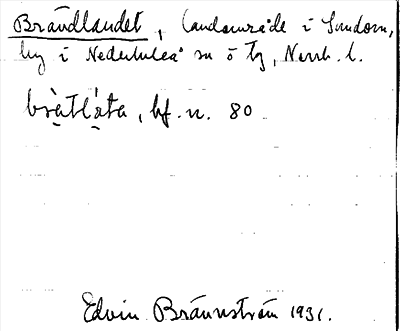 Brändlandet, landområde i Sundom,
by i Nederluleå sn o tg, Norrb. l.
brä̀tlǻta, bf. n. 80
Edvin Brännström 1931.